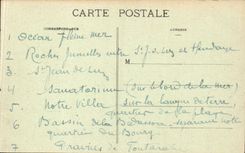 CARTE POSTALE
1 Océan Pleine mer
2 Roches Jumelles entre St. J. de Luz et Hendaye
3 St Jean de Luz
4 Sanatorium (sur le bord de la mer)
5 Notre Villa sur la
quartier de la plage
6 Bassin de la Bidassoa
quartier du Bourg
7 de Fontarabie